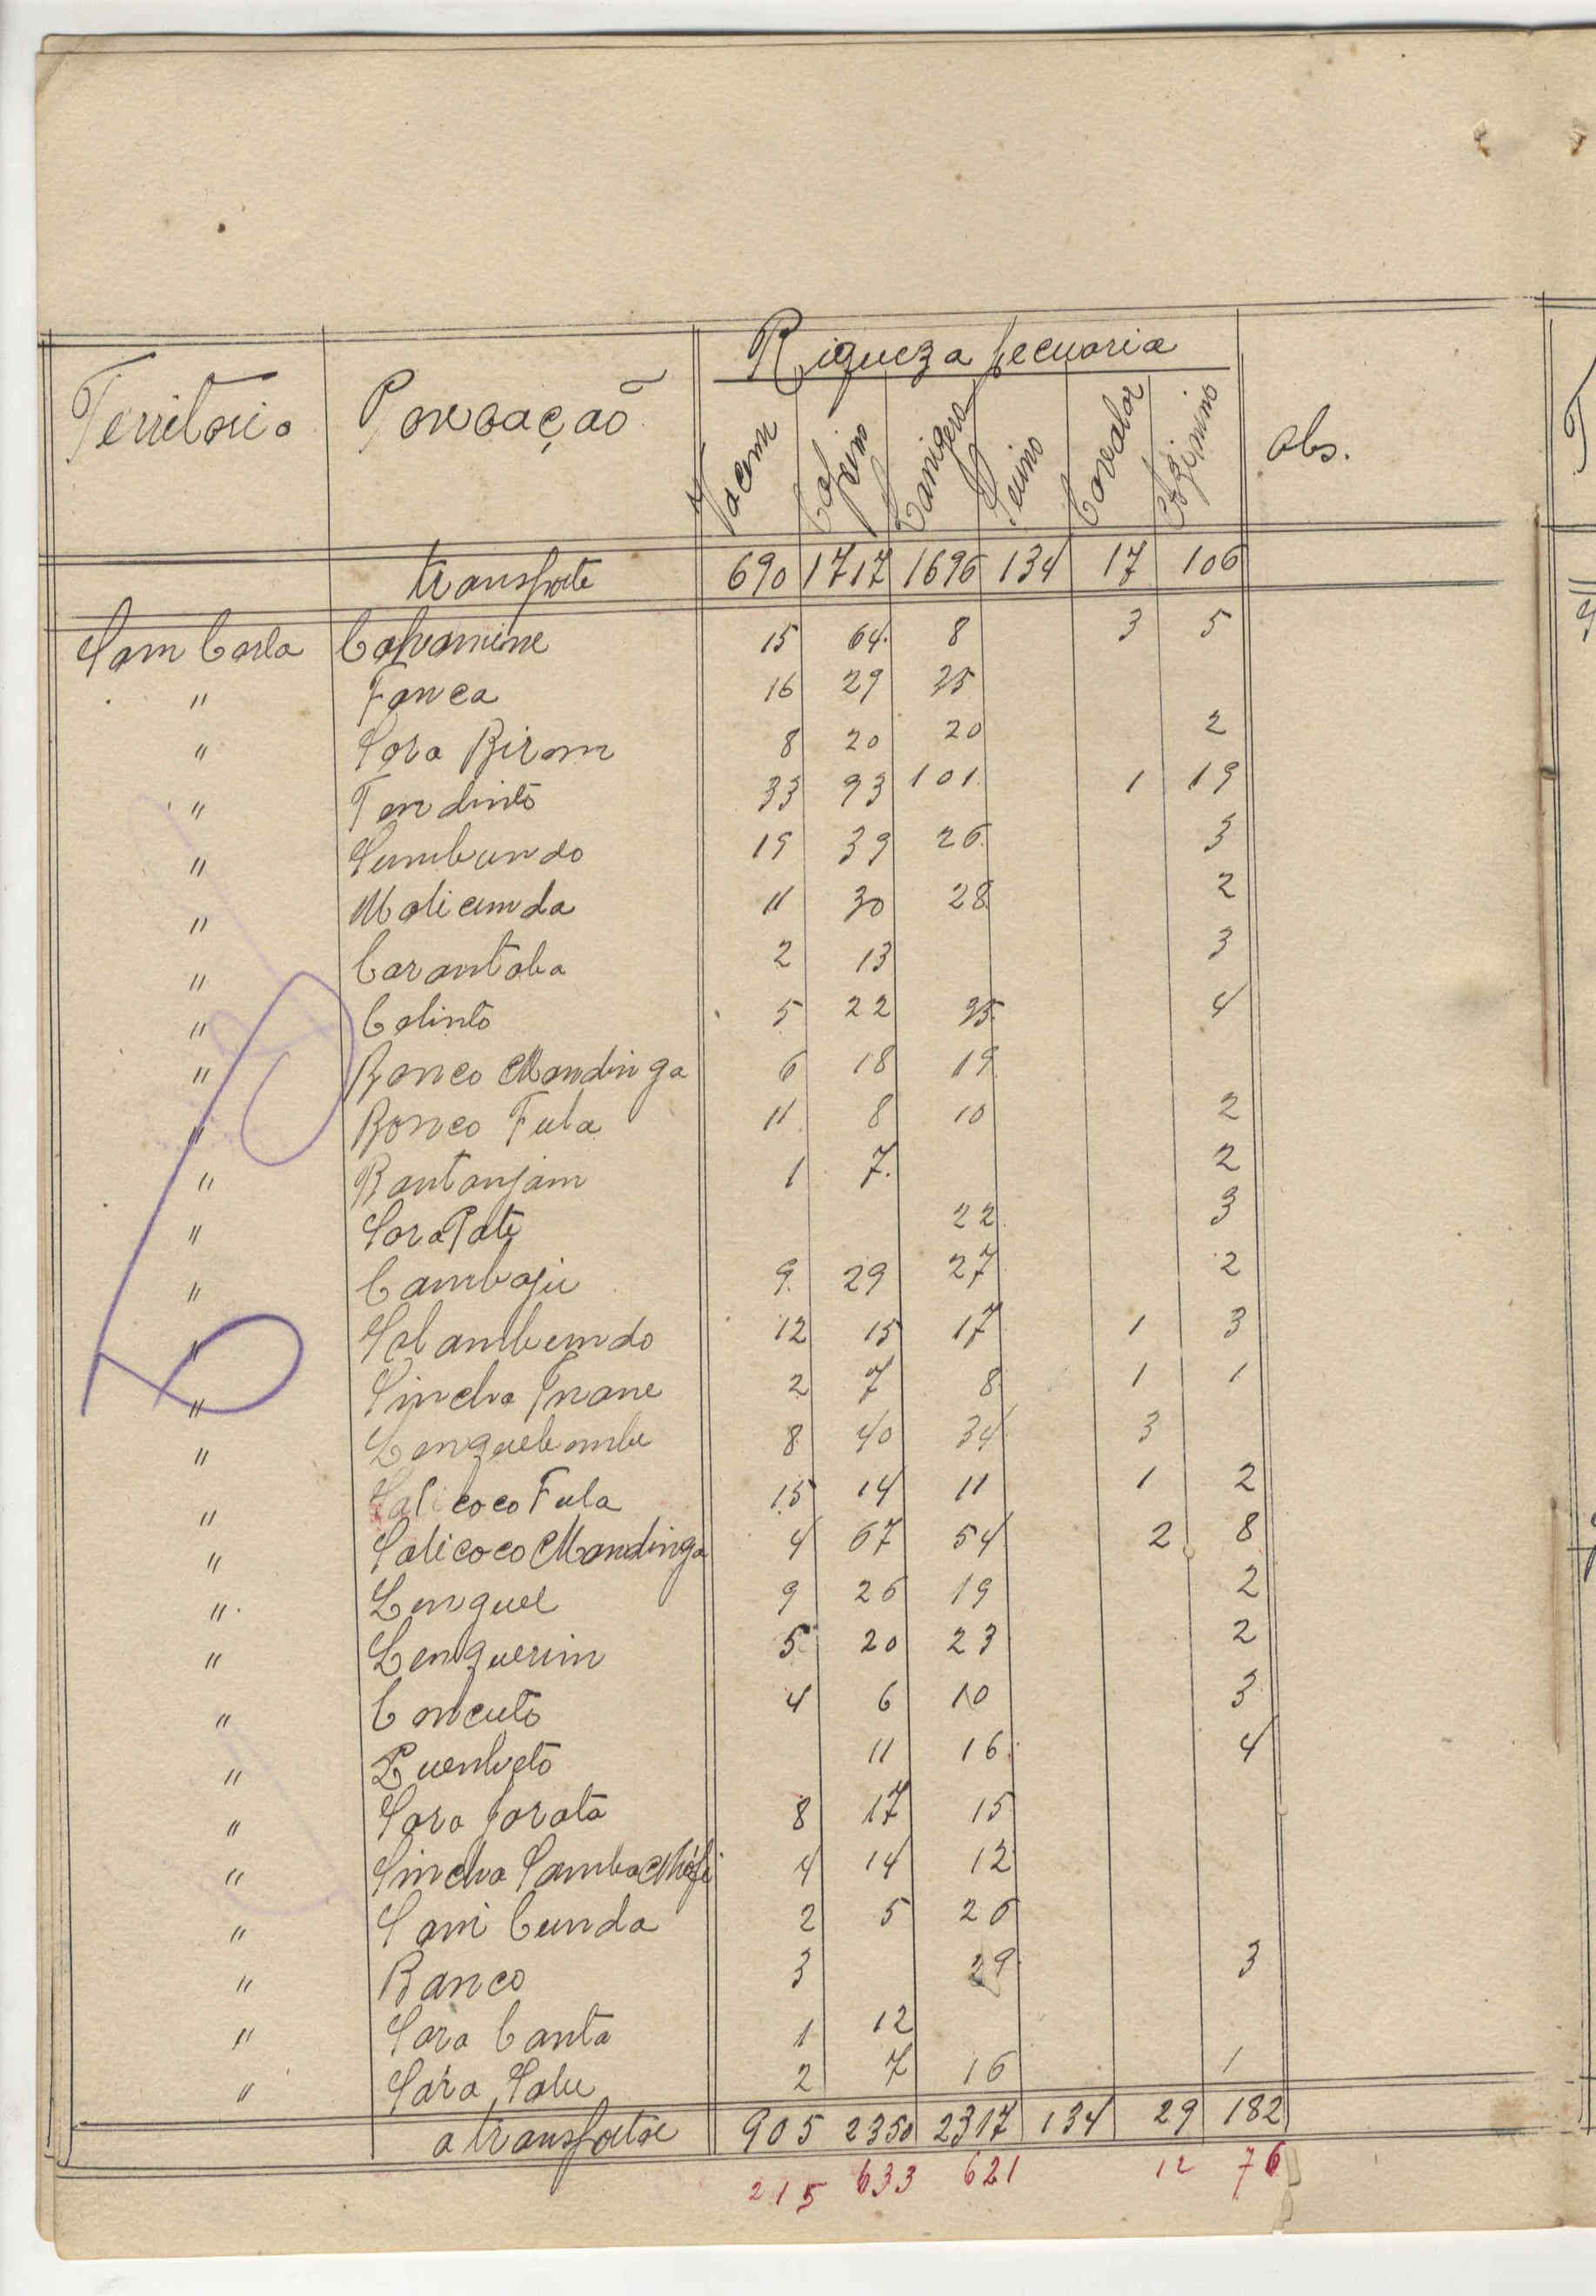 Riqueza pecuaria
Territorio Povoação Vacum Caprino Lanigero Suino Cavalar Azinino Obs.
transporte 690 1717 1696 134 17 106
Sam Corla Caluomine 15 64 8 3 5
" Fanca 16 29 35
" Sara Biram 8 20 20 2
" Tendinto 33 93 101 1 19
" Sumbundo 19 39 26 3
" Malicunda 11 30 28 2
" Carantaba 2 13 3
" Colinto 5 22 35 4
" Banco Mandinga 6 18 19
" Bonco Fula 11 8 10 2
" Bantanjam 1 7 2
" Sara Pate 22 3
" Cambaju 9 29 27 2
" Salambundo 12 15 17 1 3
" Sincha 2 7 8 1 1
" 8 40 34 3
" Salicoco Fula 15 14 11 1 2
" Salicoco Mandinga 4 67 54 2 8
" Lenguel 9 26 19 2
" Lenquerim 5 20 23 2
" Concuto 4 6 10 3
" 11 16 4
" Sara Jorata 8 17 15
" Sincha Samba 4 14 12
" Sani Cunda 2 5 26
" Banco 3 29 3
" Sara Canta 1 12
" Sára Salu 2 7 16 1
a transportar 905 2350 2317 134 29 182
215 633 621 12 76